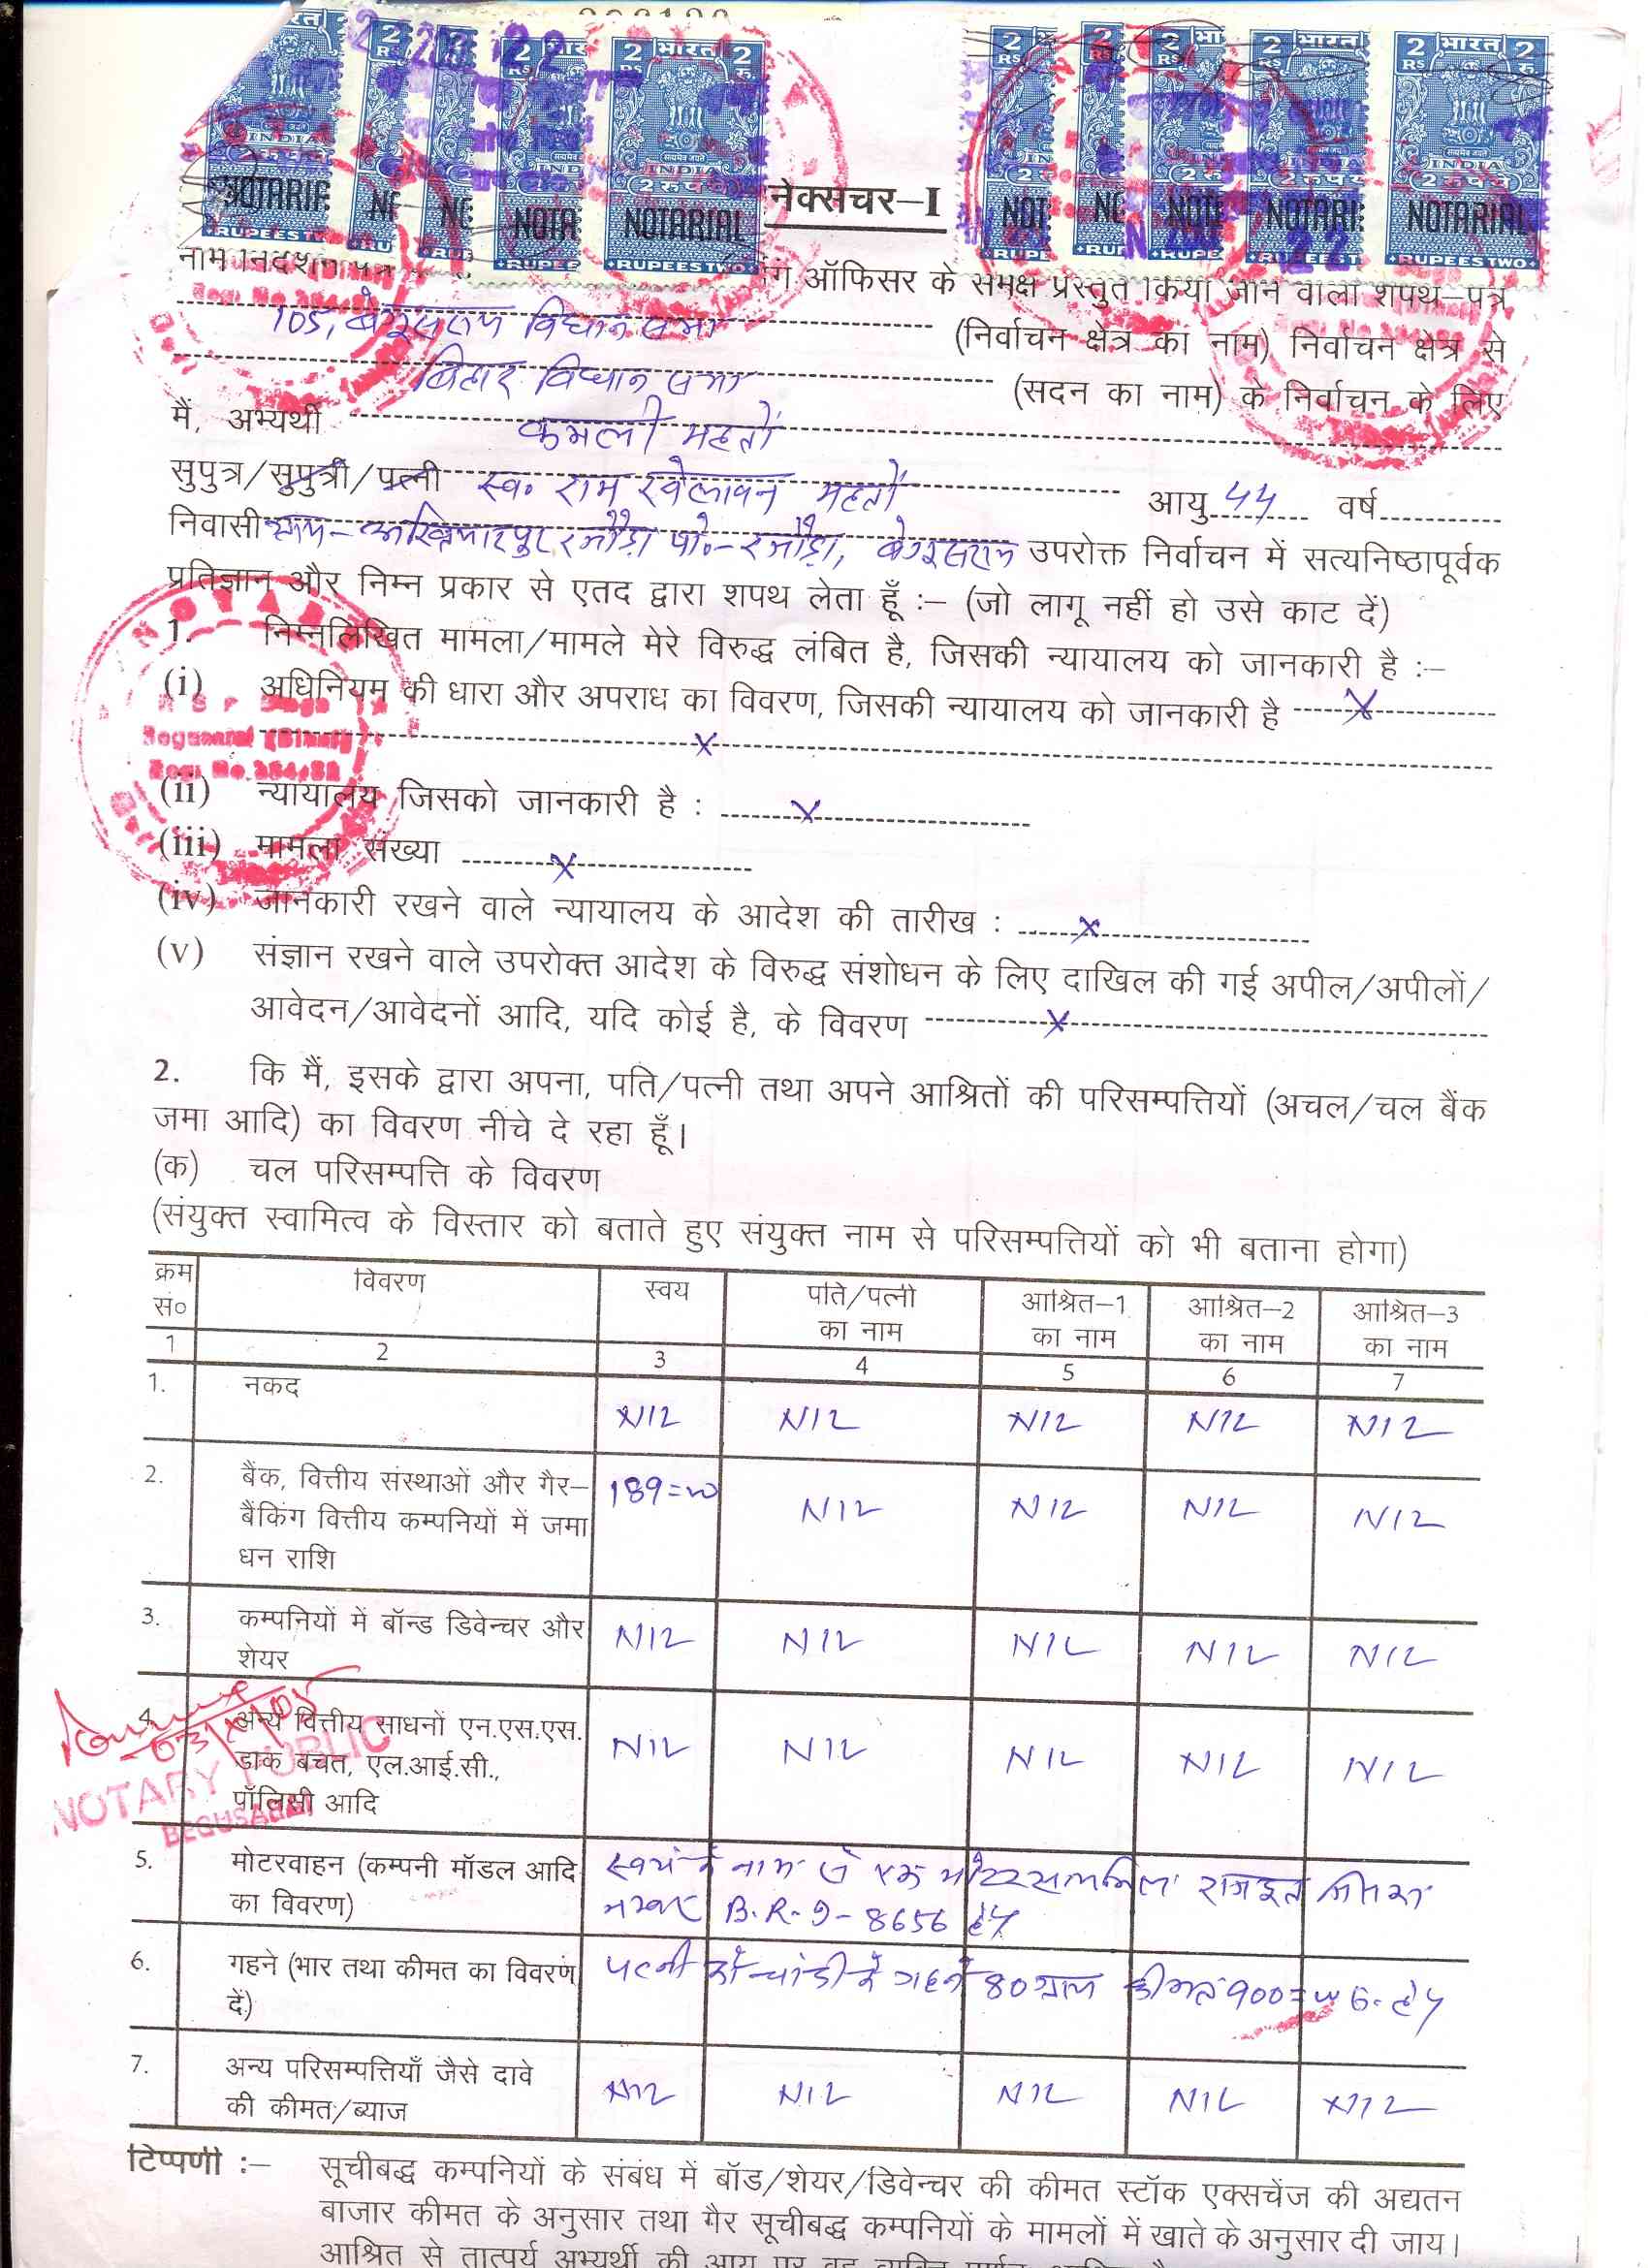 भारत
2 RS भारत 2 रु
INDIA
2 रुपये
NOTARIAL
RUPEES TWO
नेक्सचर–I
ऑफिसर के समक्ष प्रस्तुत किया जाने वाला शपथ–पत्र
105, बेगूसराय विधान सभा (निर्वाचन क्षेत्र का नाम) निर्वाचन क्षेत्र से
बिहार विधान सभा (सदन का नाम) के निर्वाचन के लिए
मैं, अभ्यर्थी कमली महतों
सुपुत्र/सुपुत्री/पत्नी स्व० राम खेलावन महतों आयु 44 वर्ष
निवासी रजौड़ा पो०– रजौड़ा, बेगूसराय उपरोक्त निर्वाचन में सत्यनिष्ठापूर्वक
प्रतिज्ञान और निम्न प्रकार से एतद द्वारा शपथ लेता हूँ :– (जो लागू नहीं हो उसे काट दें)
1. निम्नलिखित मामला/मामले मेरे विरुद्ध लंबित है, जिसकी न्यायालय को जानकारी है :–
(i) अधिनियम की धारा और अपराध का विवरण, जिसकी न्यायालय को जानकारी है X
X
(ii) न्यायालय जिसको जानकारी है : X
(iii) मामला संख्या X
(iv) जानकारी रखने वाले न्यायालय के आदेश की तारीख : X
(v) संज्ञान रखने वाले उपरोक्त आदेश के विरुद्ध संशोधन के लिए दाखिल की गई अपील/अपीलों/
आवेदन/आवेदनों आदि, यदि कोई है, के विवरण X
2. कि मैं, इसके द्वारा अपना, पति/पत्नी तथा अपने आश्रितों की परिसम्पत्तियों (अचल/चल बैंक
जमा आदि) का विवरण नीचे दे रहा हूँ।
(क) चल परिसम्पत्ति के विवरण
(संयुक्त स्वामित्व के विस्तार को बताते हुए संयुक्त नाम से परिसम्पत्तियों को भी बताना होगा)
क्रम सं० विवरण स्वय पति/पत्नी का नाम आश्रित–1 का नाम आश्रित–2 का नाम आश्रित–3 का नाम
1 2 3 4 5 6 7
1. नकद NIL NIL NIL NIL NIL
2. बैंक, वित्तीय संस्थाओं और गैर– 189=00 NIL NIL NIL NIL
बैंकिंग वित्तीय कम्पनियों में जमा
धन राशि
3. कम्पनियों में बॉन्ड डिवेन्चर और NIL NIL NIL NIL NIL
शेयर
4. अन्य वित्तीय साधनों एन.एस.एस. NIL NIL NIL NIL NIL
डाक बचत, एल.आई.सी.,
पॉलिसी आदि
NOTARY PUBLIC
BEGUSARAI
5. मोटरवाहन (कम्पनी मॉडल आदि स्वयं के नाम से एक राजदूत जिसका
का विवरण) नम्बर B.R-9-8656 है।
6. गहने (भार तथा कीमत का विवरण पत्नी को चांदी के गहने 80 ग्राम कीमत 900=00 रु. है।
दें)
7. अन्य परिसम्पत्तियाँ जैसे दावे NIL NIL NIL NIL NIL
की कीमत/ब्याज
टिप्पणी :– सूचीबद्ध कम्पनियों के संबंध में बॉड/शेयर/डिवेन्चर की कीमत स्टॉक एक्सचेंज की अद्यतन
बाजार कीमत के अनुसार तथा गैर सूचीबद्ध कम्पनियों के मामलों में खाते के अनुसार दी जाय।
आश्रित से तात्पर्य अभ्यर्थी की आय पर